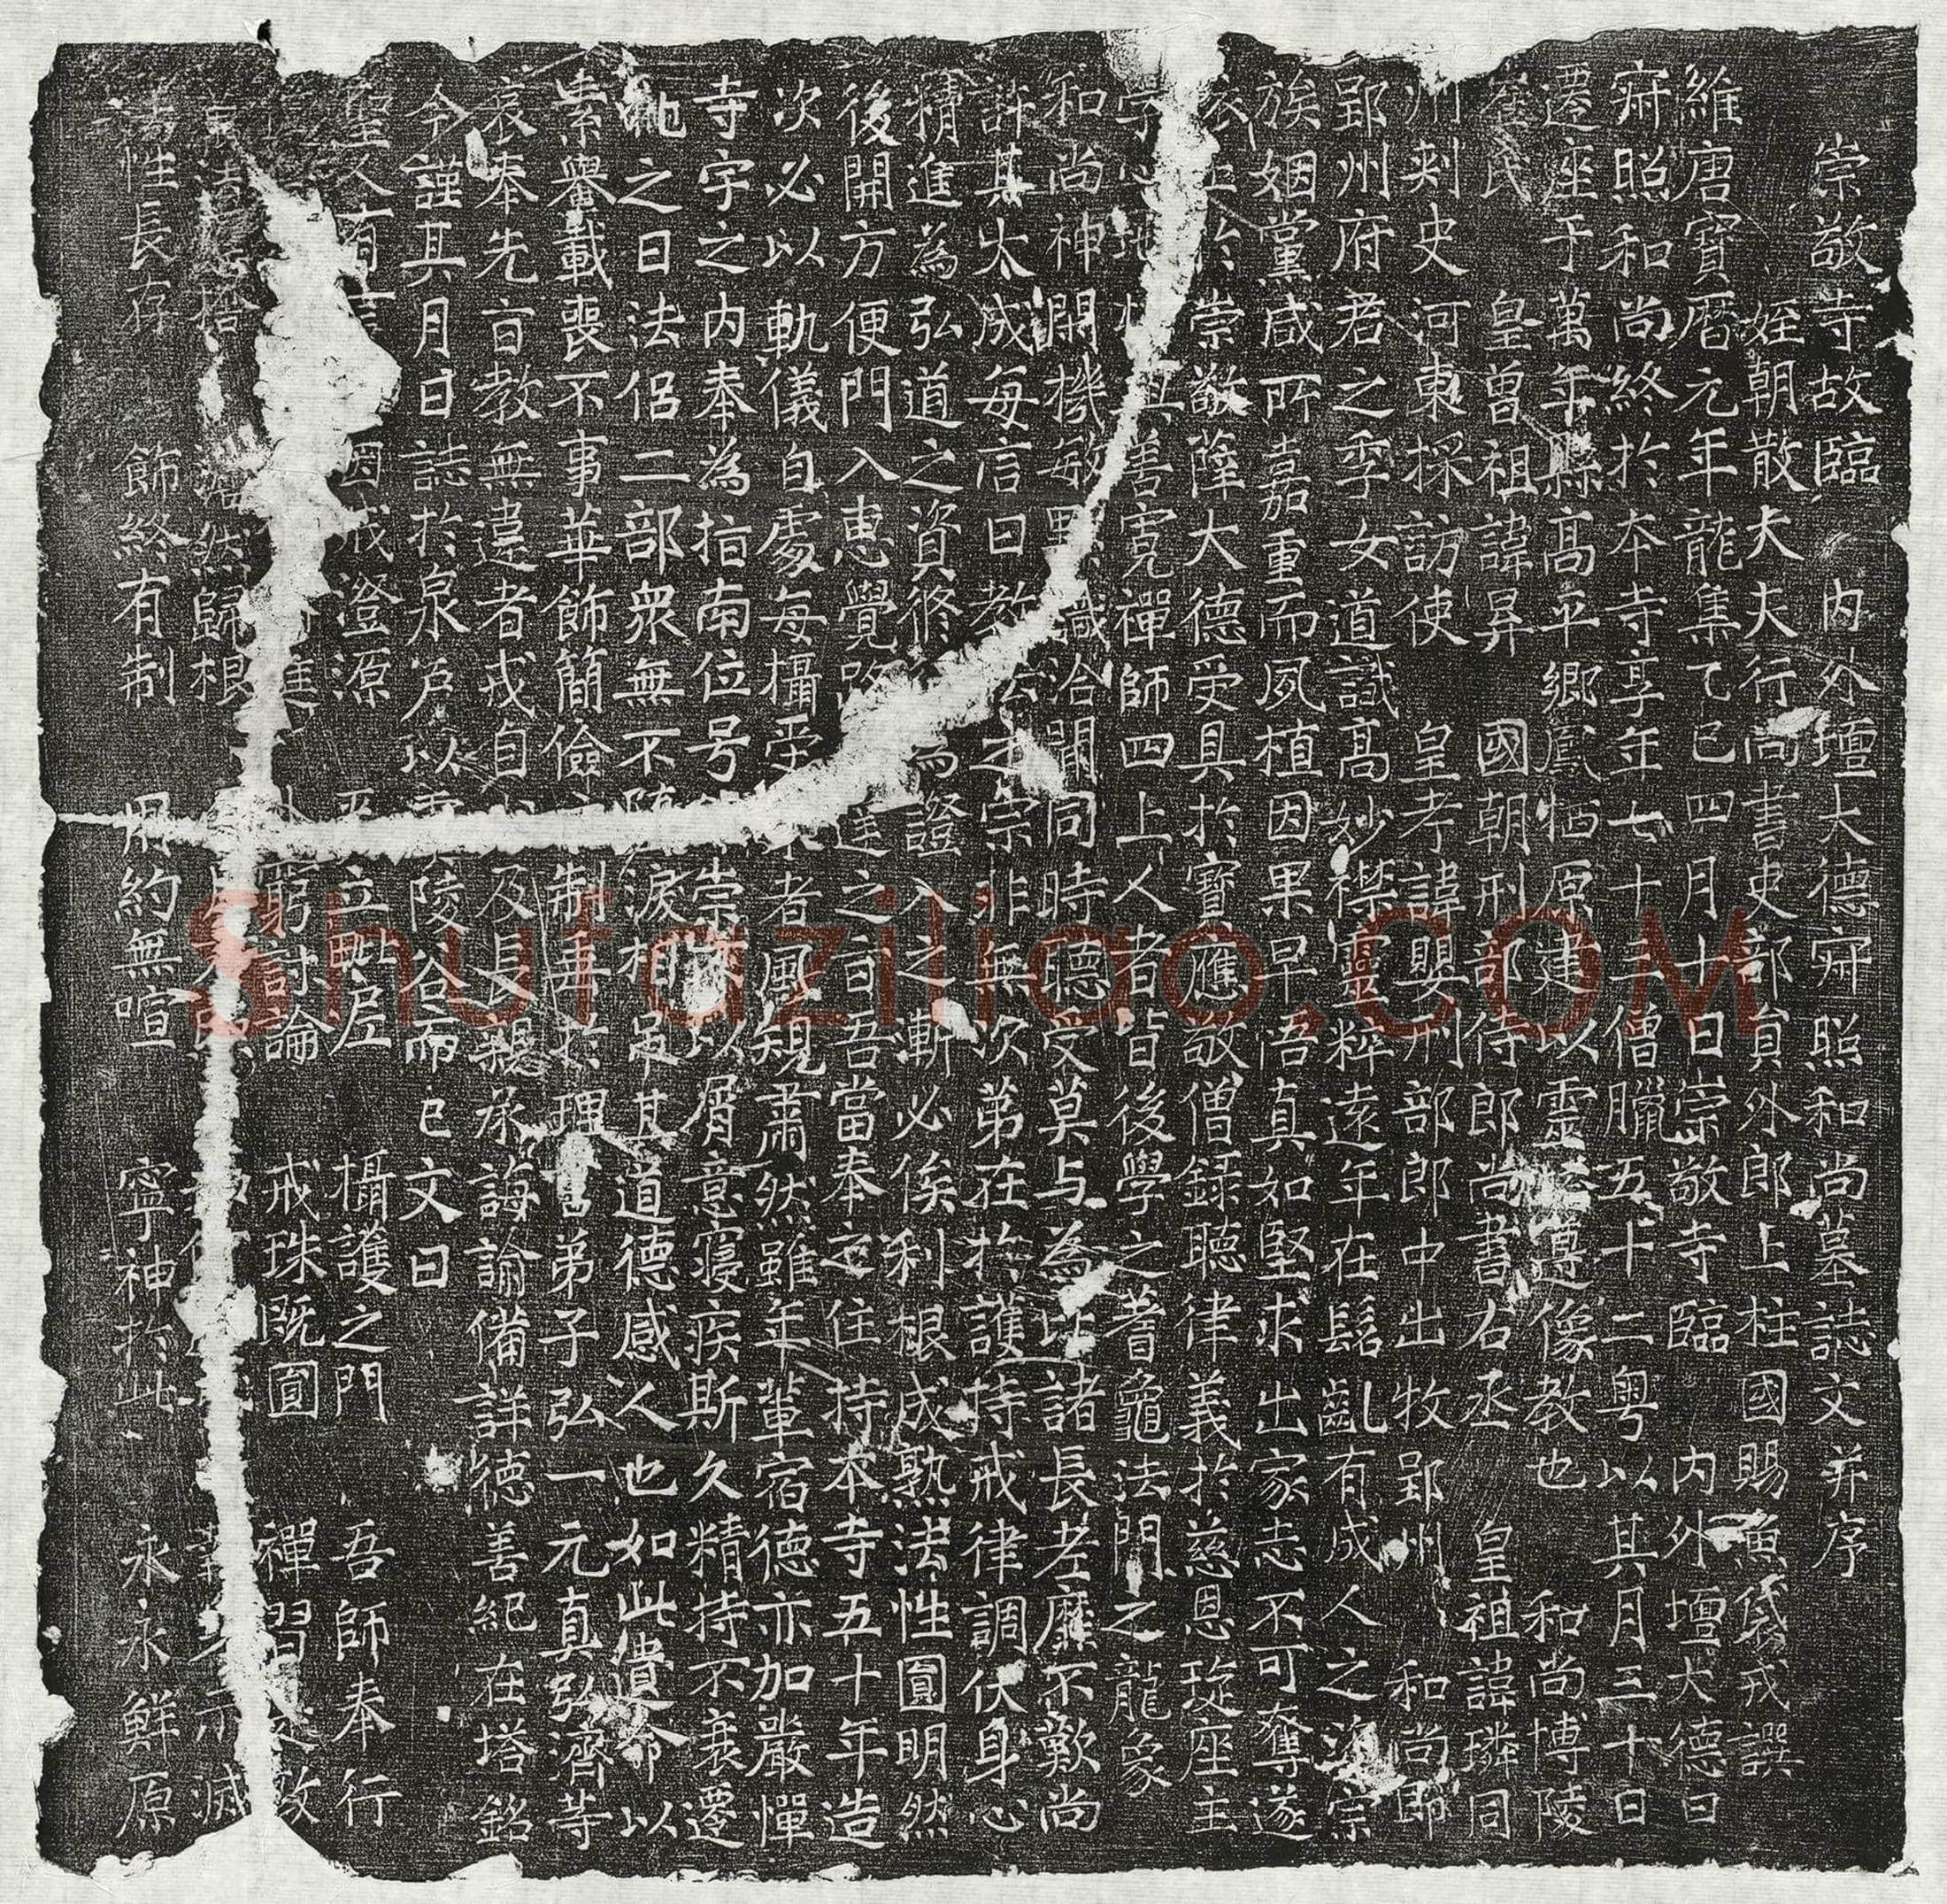 崇敬寺故臨 內外壇大德寂照和尚墓誌文并序
姪朝散大夫行尚書吏部員外郎上柱國賜魚袋戎譔
維唐寶曆元年龍集乙巳四月廿日崇敬寺臨 內外壇大德曰
寂照和尚終於本寺享年七十五僧臘五十二粵以其月三十日
遷座于萬年縣高平鄉鳳栖原建以靈塔遵像教也 和尚博陵
崔氏 皇曾祖諱昇 國朝刑部侍郎尚書右丞 皇祖諱璘同
州刾史河東採訪使 皇考諱嬰刑部郎中出牧郢州 和尚即
郢州府君之季女道識高妙襟靈粹遠年在髫齓有成人之 宗
族姻黨咸所嘉重而夙植因果早悟真如堅求出家志不可奪遂
於崇敬薩大德受具於寶應敬僧錄聽律義於慈恩琁座主
心地 善寬禪師四上人者皆後學之蓍龜法門之龍象
和尚神開機敏 識洽聞同時聽受莫与為比諸長老靡不歎尚
許其大成每言曰教 宗非無次第在於護持戒律調伏身心
精進為弘道之資修 為證入之漸必俟利根成熟法性圓明然
後開方便門入惠覺路 達之旨吾當奉之住持本寺五十年造
次必以軌儀自處每攝受 者風規肅然雖年輩宿德亦加嚴憚
寺宇之內奉為指南位号 崇 以屑意寢疾斯久精持不衰遷
祂之日法侶二部衆無不 淚相 其道德感人也如此遺命以
素轝載喪不事華飾簡儉 制率 理 弟子弘一元真弘濟等
哀奉先旨教無違者戎自 及長親承誨諭備詳德善紀在塔銘
今謹其月日誌於泉戶以 陵谷而已文曰
聖人有 因戒澄源 立 攝護之門 吾師奉行
進 窮討論 戒珠既圓 禪習
澹然歸根 示滅
法性長存 飾終有制 用約無喧 寧神於此 永永鮮原
Shufaziliao.COM